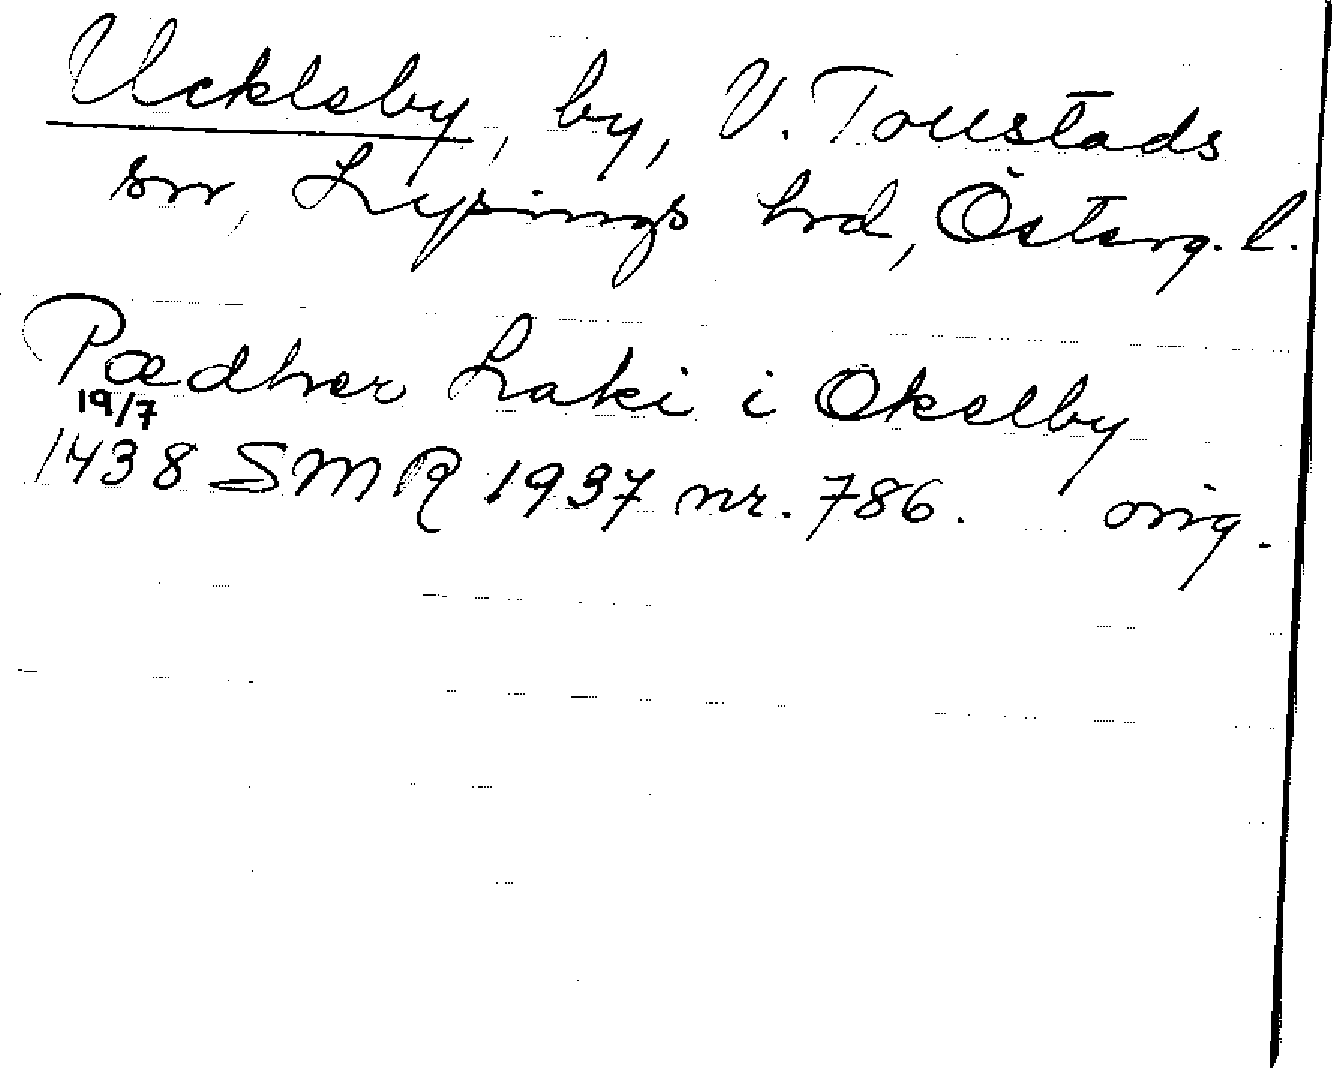 Uckleby, by, V. Tollstads
sn, Lysings hd, Österg. l.
Pædher Laki i Okelby
19/7
1438 SMR 1937 nr. 786. orig.